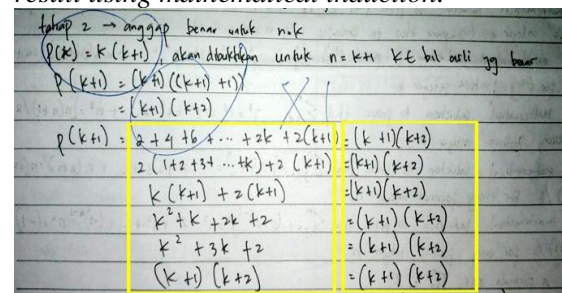 result using mathematical induction.
tahap 2 → anggap benar untuk n=k
P(k) = k(k+1), akan dibuktikan untuk n = k+1 k∈ bil asli jg benar
P(k+1) = (k+1)((k+1)+1)
= (k+1)(k+2)
P(k+1) : 2+4+6+...+2k+2(k+1) = (k+1)(k+2)
2(1+2+3+...+k)+2(k+1) = (k+1)(k+2)
k(k+1)+2(k+1) = (k+1)(k+2)
k²+k+2k+2 = (k+1)(k+2)
k²+3k+2 = (k+1)(k+2)
(k+1)(k+2) = (k+1)(k+2)